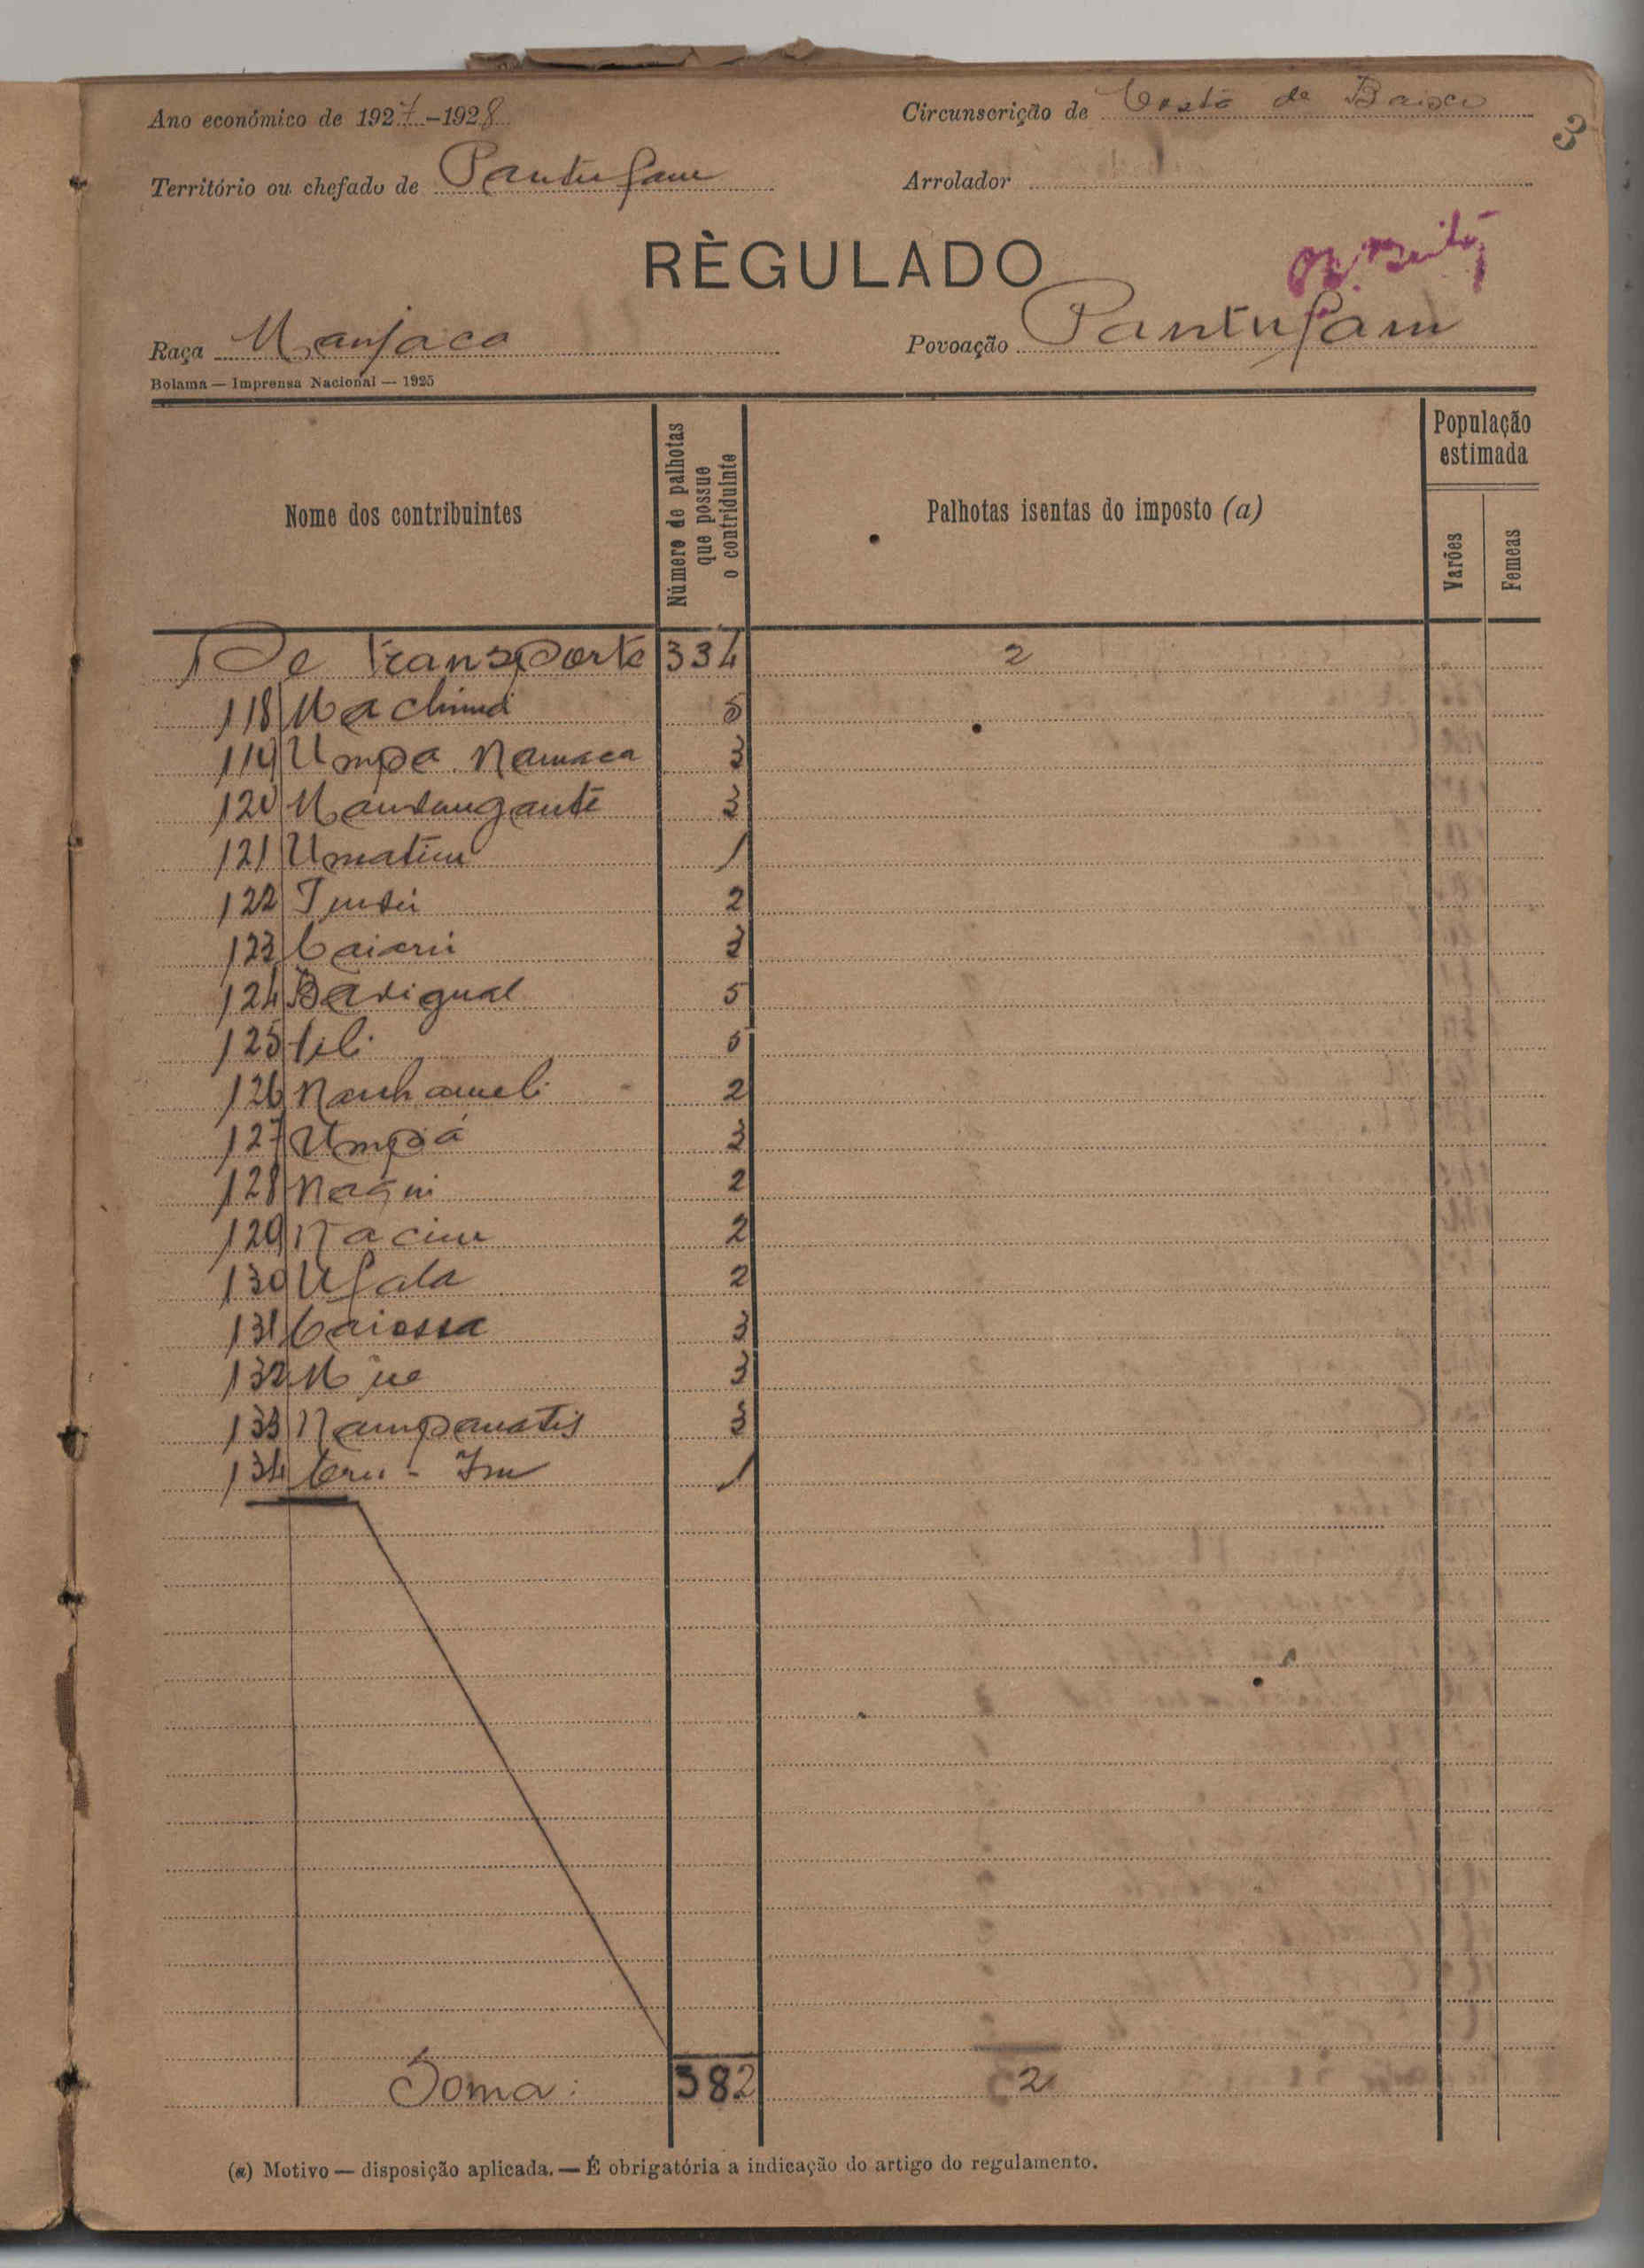 Ano económico de 1927-1928
Circunscrição de Costa de Baixo
3
Território ou chefado de Pantufam
Arrolador
RÈGULADO
Raça Manjaca
Povoação Pantufam
Bolama — Imprensa Nacional — 1925
Nome dos contribuintes
Número de palhotas que possue o contriduinte
Palhotas isentas do imposto (a)
População estimada
Varões
Femeas
De Transporte 334 2
118 Machind 5
119 Umpa Namaca 3
120 3
121 Umatiu 1
122 2
123 3
124 Barigual 5
125 5
126 Nanhameli 2
127 Umpá 3
128 2
129 Naciu 2
130 Ufala 2
131 Caiossa 3
132 3
133 Nampanatis 3
134 1
Soma: 382 2
(a) Motivo — disposição aplicada. — É obrigatória a indicação do artigo do regulamento.